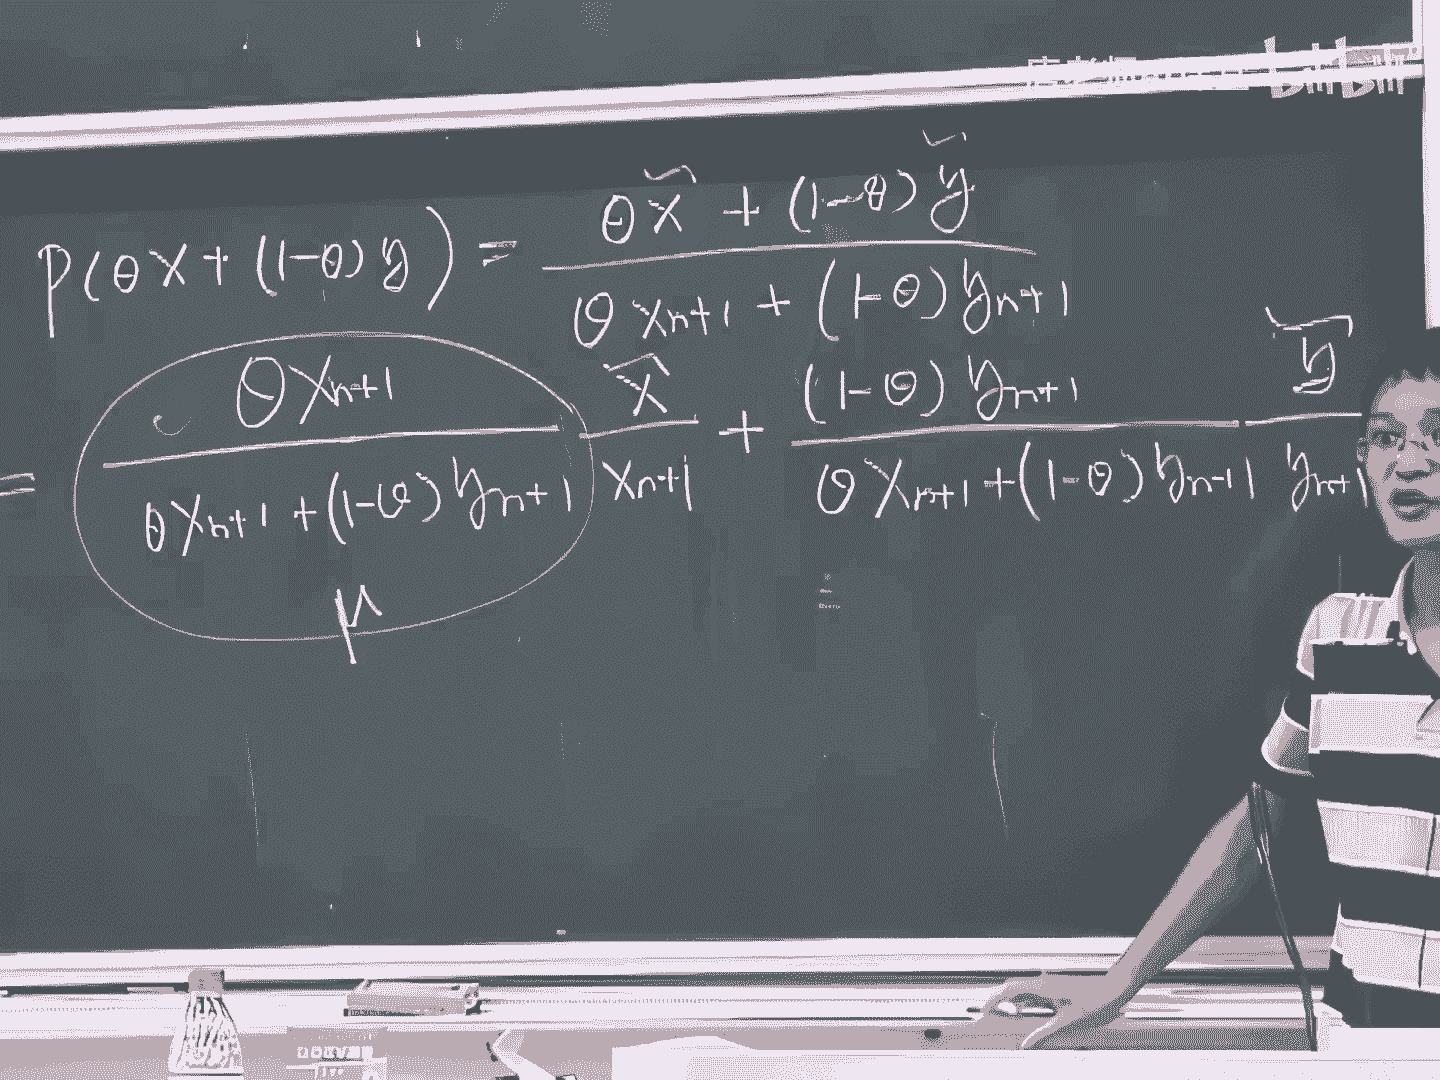 P(θx + (1-θ)y) = θx̃ + (1-θ)ỹ / θx_{n+1} + (1-θ)y_{n+1}
= θx_{n+1} / θx_{n+1} + (1-θ)y_{n+1} x̃ / x_{n+1} + (1-θ)y_{n+1} / θx_{n+1} + (1-θ)y_{n+1} ỹ / y_{n+1}
μ
bilibili